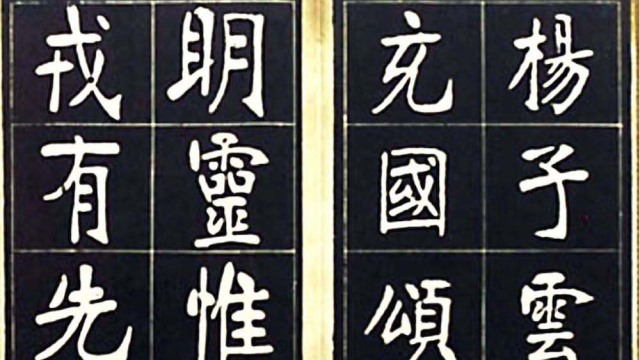 楊子雲
充國頌
明靈惟
戎有先